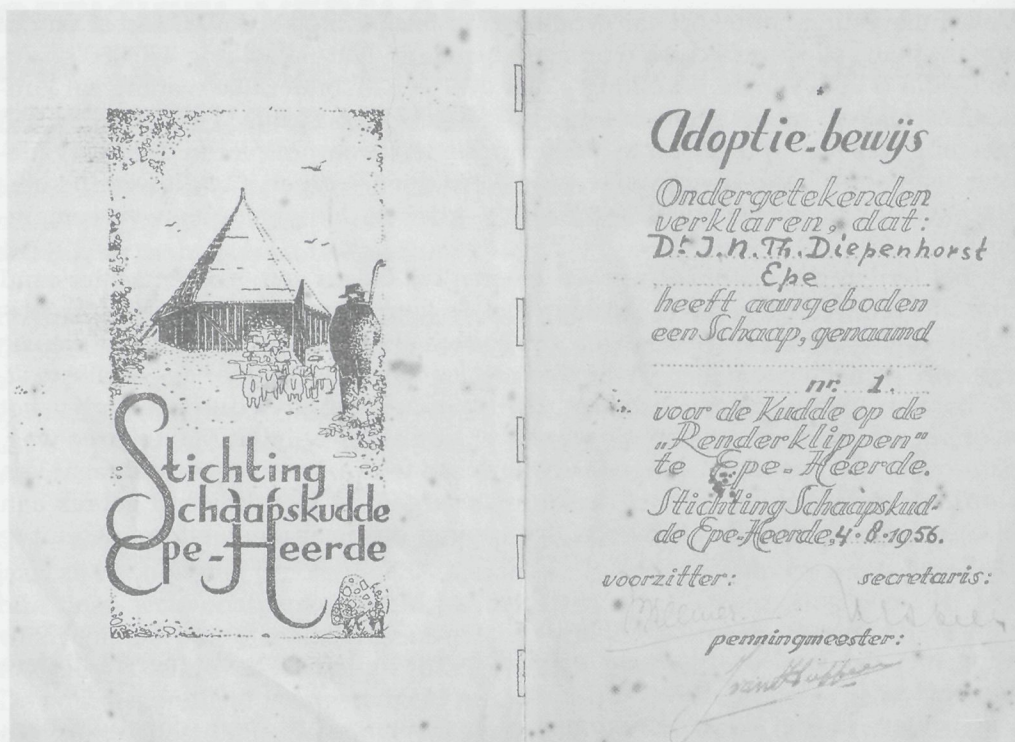 Stichting
Schaapskudde
Epe-Heerde
Adoptie-bewijs
Ondergetekenden
verklaren, dat:
Dr. J.N.Th. Diepenhorst
Epe
heeft aangeboden
een Schaap, genaamd
nr. 1
voor de Kudde op de
„Renderklippen”
te Epe-Heerde.
Stichting Schaapskud-
de Epe-Heerde, 4-8-1956.
voorzitter: secretaris:
penningmeester: